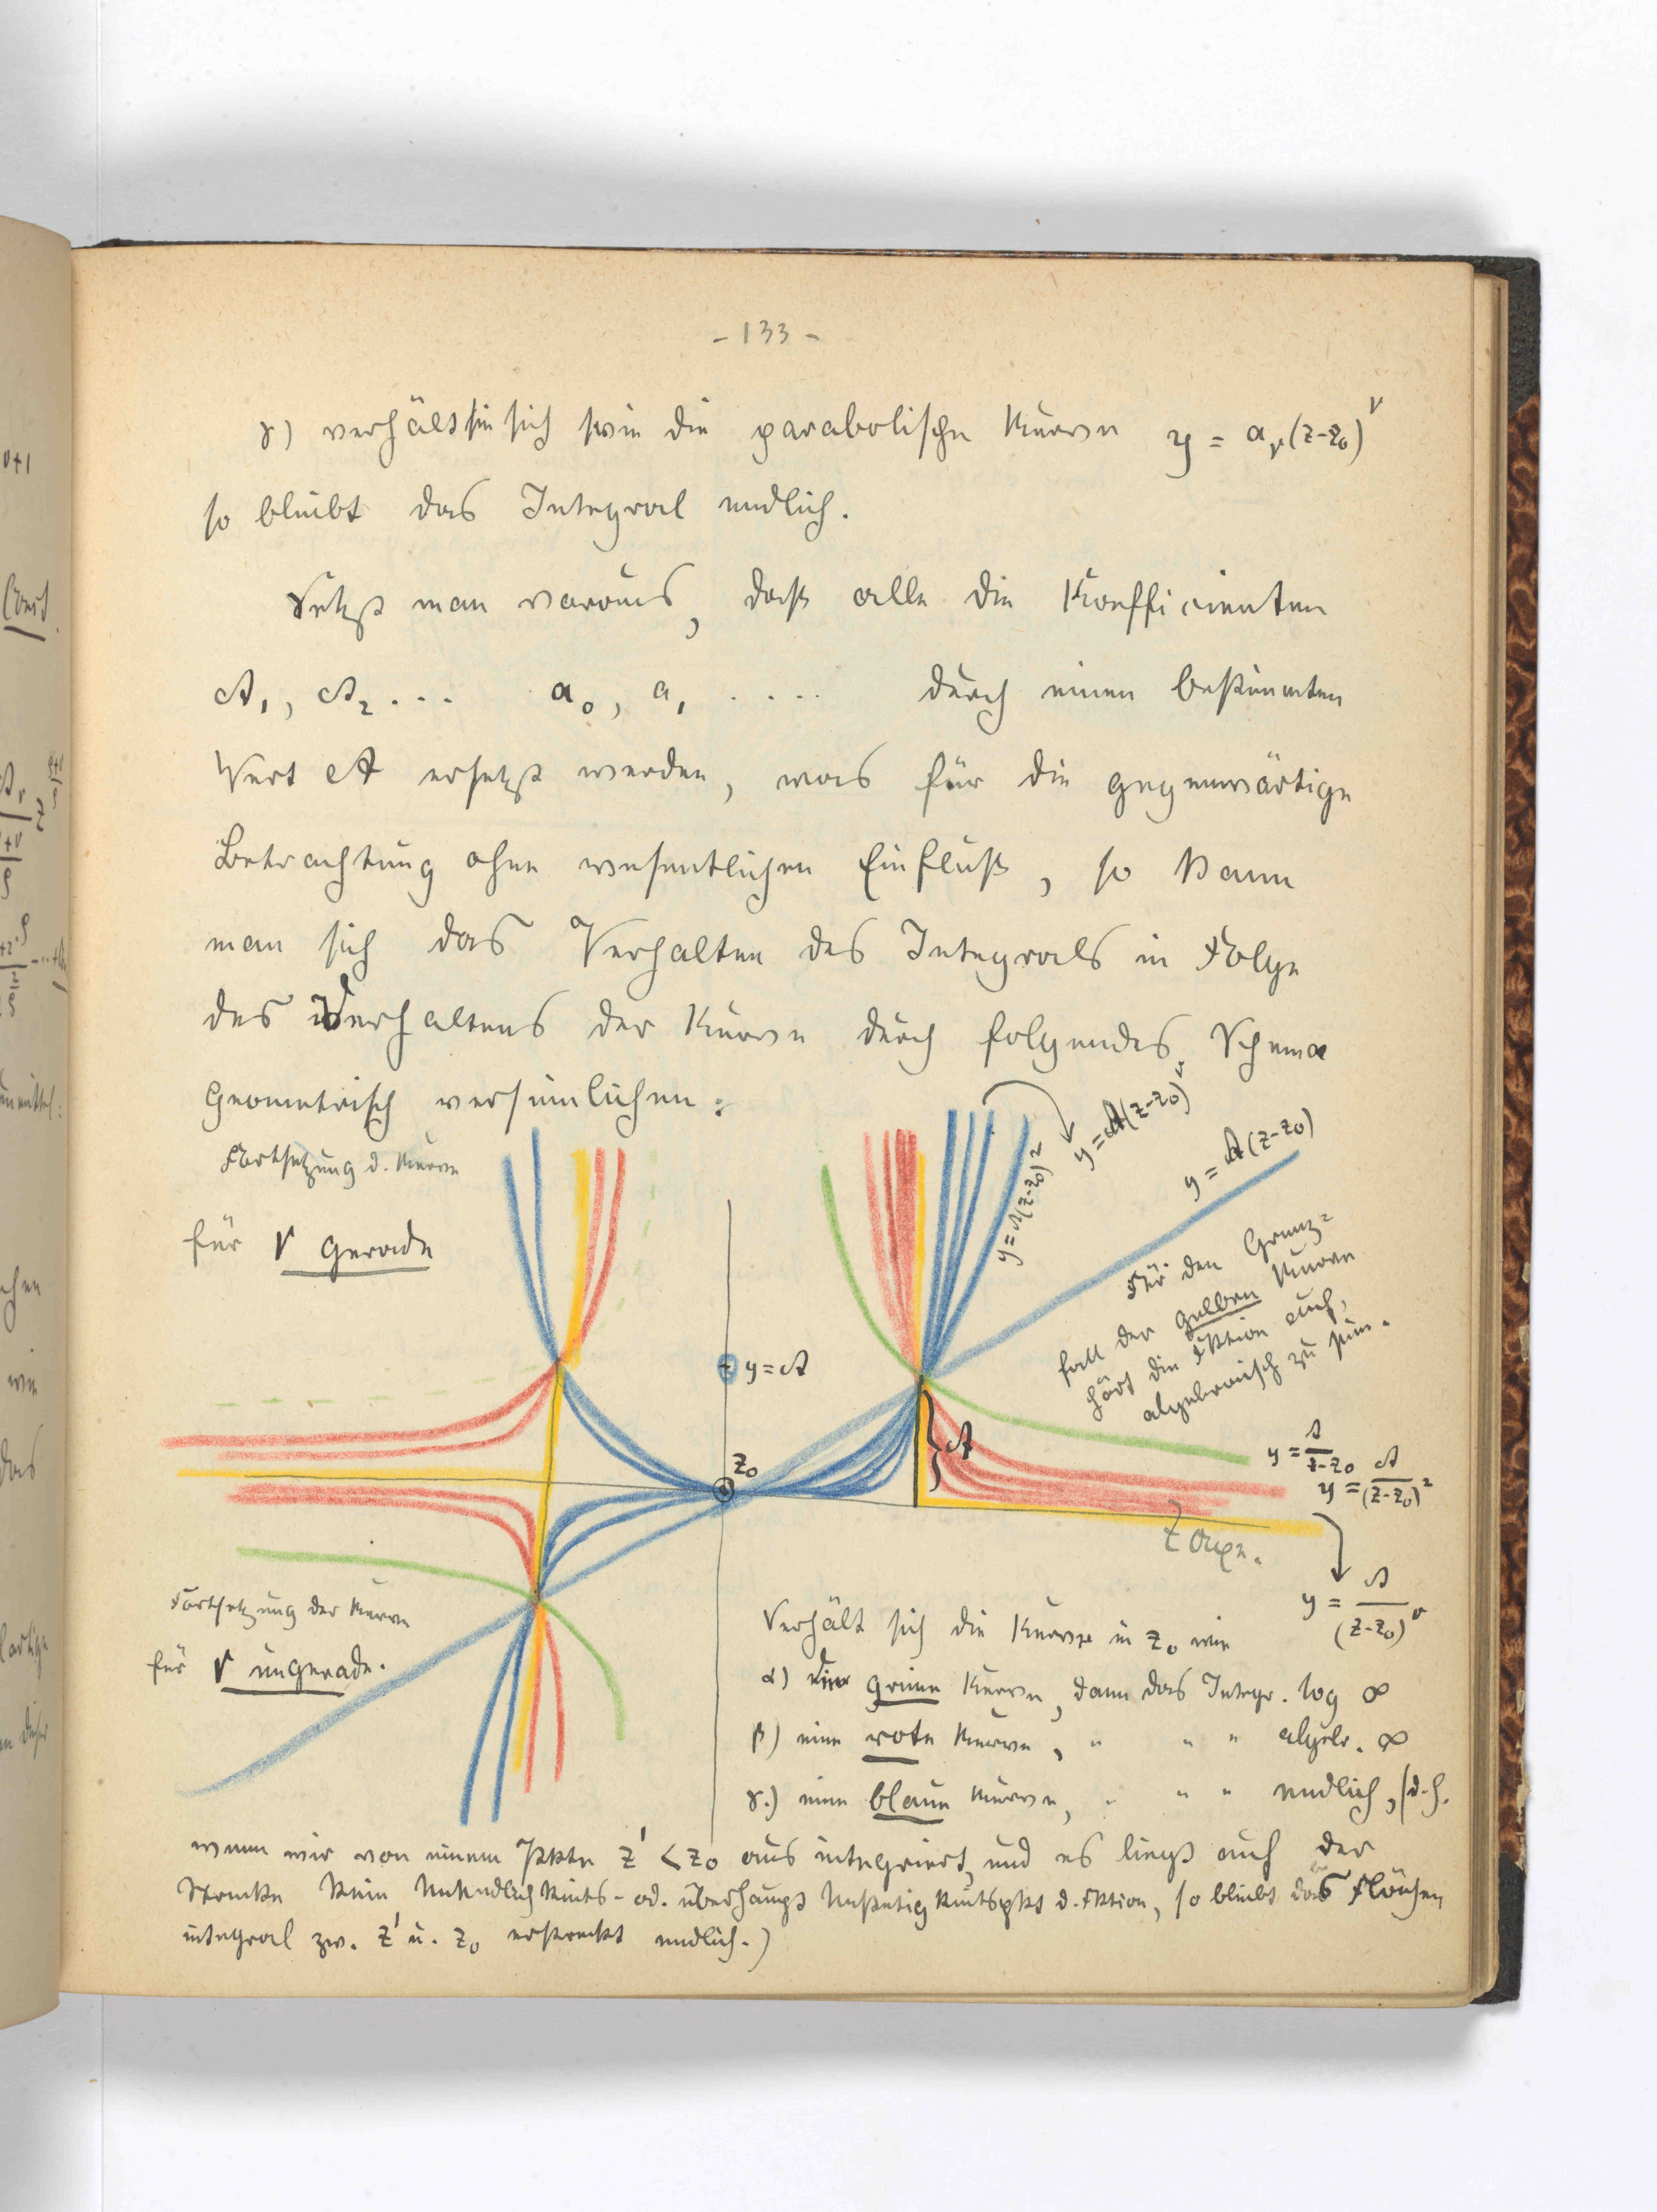 - 133 -
γ) verhält sie sich wie die parabolische Kurve y = a_ν(z-z₀)^ν
so bleibt das Integral endlich.
Setzt man voraus, daß alle die Koefficienten
A₁, A₂ ... a₀, a₁ .... durch einen bestimmten
Wert A ersetzt werden, was für die gegenwärtige
Betrachtung ohne wesentlichen Einfluß, so kann
man sich das Verhalten des Integrals in Folge
des Verhaltens der Kurve durch folgendes Schema
geometrisch versinnlichen:
Fortsetzung d. Kurve
für ν gerade
y = A(z-z₀)²
y = A(z-z₀)^ν
y = A(z-z₀)
Für den Grenz=
fall der gelben Kurve
hört die Fktion auf,
algebraisch zu sein.
y = A
A
z₀
y = A/(z-z₀)
y = A/(z-z₀)²
z Axe.
y = A/(z-z₀)^ν
Fortsetzung der Kurve
für ν ungerade.
Verhält sich die Kurve in z₀ wie
α) eine grüne Kurve, dann das Integr. log ∞
β) eine rote Kurve, " " " algebr. ∞
γ.) eine blaue Kurve, " " " endlich, (d.h.
wenn wir von einem Pkte z' < z₀ aus integriert, und es liegt auf der
Strecke kein Unendlichkeits- od. überhaupt Unstetigkeitspkt d. Fktion, so bleibt das Flächen
integral zw. z' u. z₀ erstreckt endlich.)